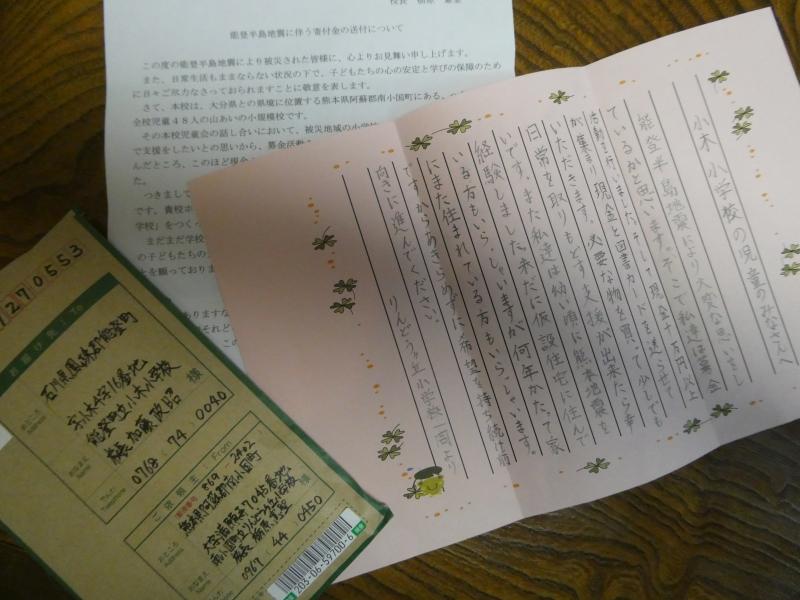 能登半島地震に伴う寄付金の送付について
この度の能登半島地震により被災された皆様に、心よりお見舞い申し上げます。
また、日常生活もままならない状況の下で、子どもたちの心の安定と学びの保障のため
に日々ご尽力なさっておられますことに敬意を表します。
さて、本校は、大分県との県境に位置する熊本県阿蘇郡南小国町にある、
全校児童４８人の山あいの小規模校です。
その本校児童会の話し合いにおいて、被災地域の小学校
で支援をしたいとの思いから、募金活動
んだところ、このほど現金
た。
つきまして
です。貴校ホ
学校」をつく
まだまだ学校
の子どもたちの
とを願っており
小木小学校の児童のみなさんへ
能登半島地震により大変な思いをし
ているかと思います。そこで私達は募金
活動を行いました。そして現金十万円以上
が集まり現金と図書カードを送らせて
いただきます。必要な物を買って少しでも
日常を取りもどす支援が出来たら幸
いです。また私達は幼い頃に熊本地震を
経験しました。未だに仮設住宅に住んで
いる方もいらっしゃいますが何年かたって家
にまた住まれている方もいらっしゃいます。
ですからあきらめずに希望を持ち続け前
向きに進んでください。
りんどうヶ丘小学校一同より
9270553
お届け先：To
おところ
Address
石川県鳳珠郡能登町
字小木十字16番地
能登町立小木小学校
おなまえ
Name
校長 加藤 政昭 様
でんわ
Telephone
0768 ( 74 ) 0040
ご依頼主：From
郵便番号 869-2402
おところ
Address
熊本県阿蘇郡南小国町
大字満願寺7045番地
南小国町立りんどうヶ丘小学校
おなまえ
Name
様
0967 ( 44 ) 0450
203-06-59700-6